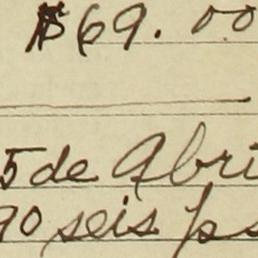 $69.00
5 de Abri
90 seis ps